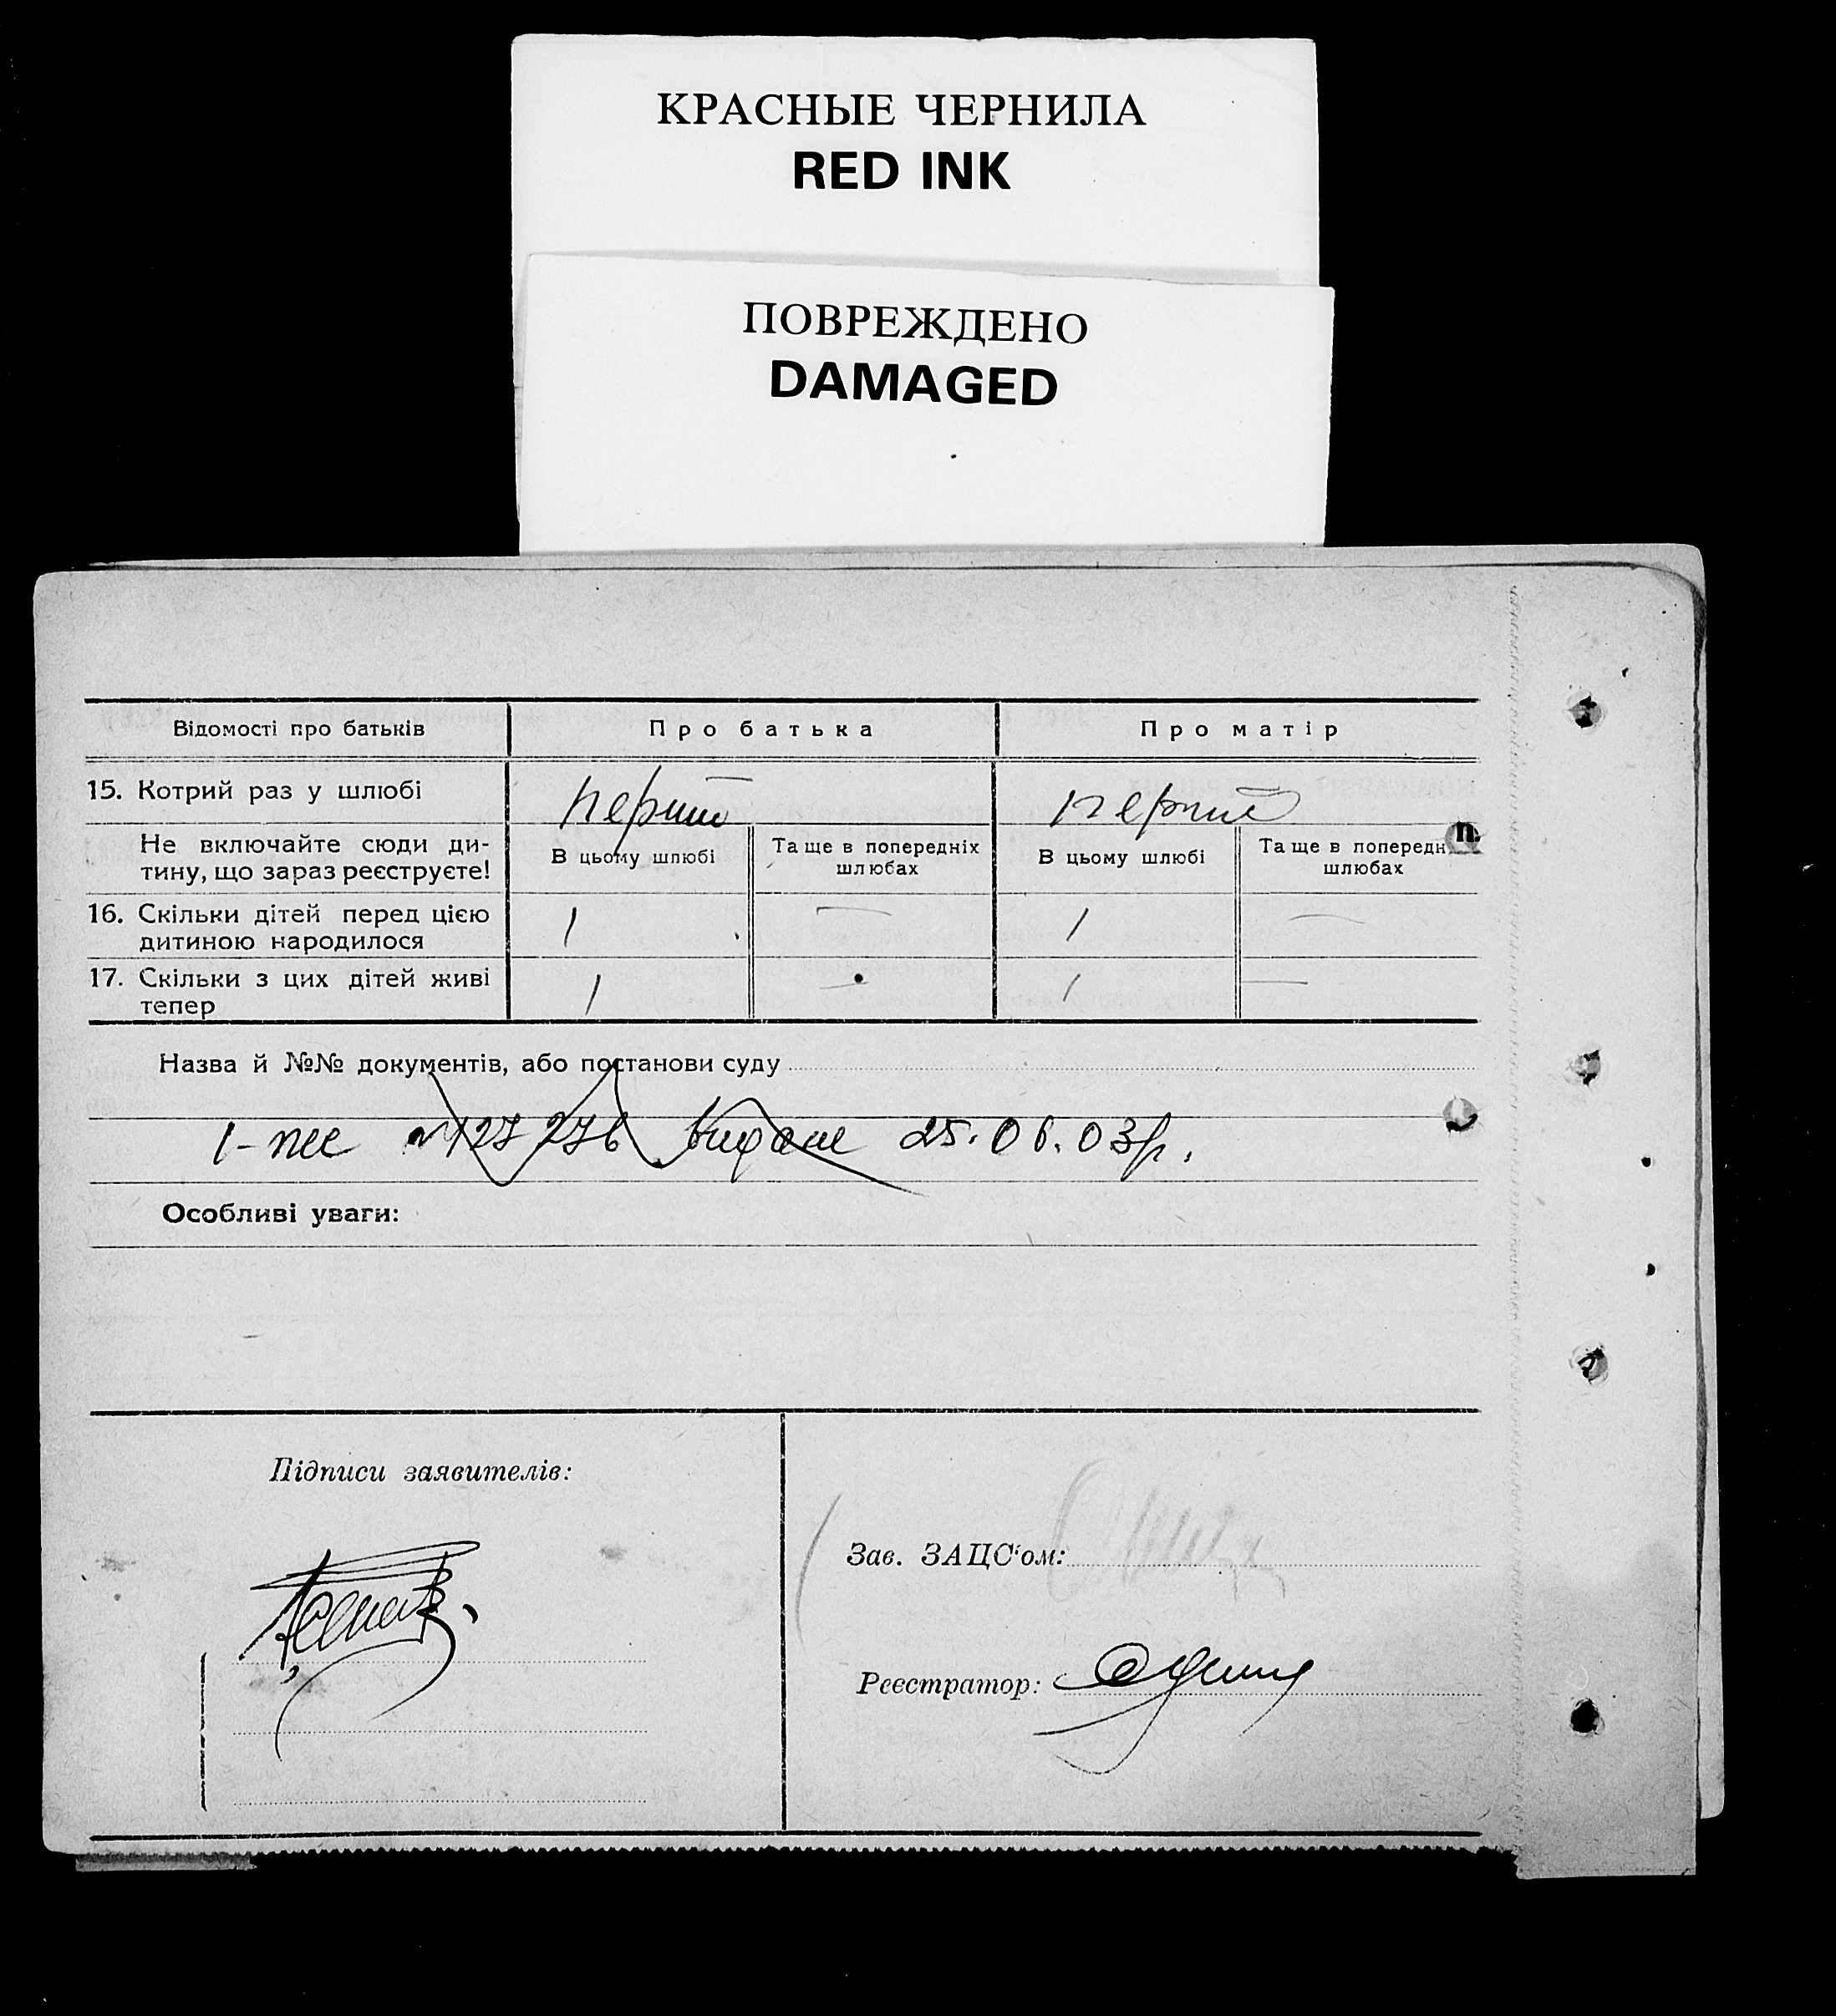 КРАСНЫЕ ЧЕРНИЛА
RED INK
ПОВРЕЖДЕНО
DAMAGED
Відомості про батьків Про батька Про матір
15. Котрий раз у шлюбі перший перший
Не включайте сюди ди-
тину, що зараз реєструєте!
В цьому шлюбі
Та ще в попередніх
шлюбах
В цьому шлюбі
Та ще в попередн п.
шлюбах
16. Скільки дітей перед цією
дитиною народилося
1 — 1 —
17. Скільки з цих дітей живі
тепер
1 — 1 —
Назва й №№ документів, або постанови суду
І-псс № 127276 видане 25.06.03р.
Особливі уваги:
Підписи заявителів:
Зав. ЗАЦС'ом:
Реєстратор: